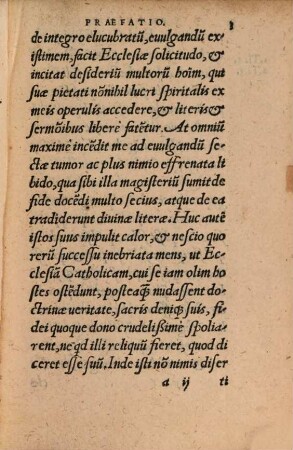 PRAEFATIO. 3
de integro elucubratū, euulgandū ex
istimem, facit Ecclesiæ solicitudo, &
incitat desideriū multorū hoīm, qui
suæ pietati nōnihil lucri spiritalis ex
meis operulis accedere, & literis &
sermōibus liberè fatētur. At omniū
maximè incēdit me ad euulgandū se
ctæ tumor ac plus nimio effrenata li
bido, qua sibi illa magisteriū sumit de
fide docēdi multo secius, atque de ea
tradiderunt diuinæ literæ. Huc autē
istos suus impulit calor, & nescio quo
rerū successu inebriata mens, ut Ec
clesiā Catholicam, cui se iam olim ho
stes ostēdunt, posteaq̄ nudassent do
ctrinæ ueritate, sacris deniq; suis, fi
dei quoque dono crudelißimè spolia
rent, ne qd illi reliquū fieret, quod di
ceret esse suū. Inde isti nō nimis diser
a ij ti